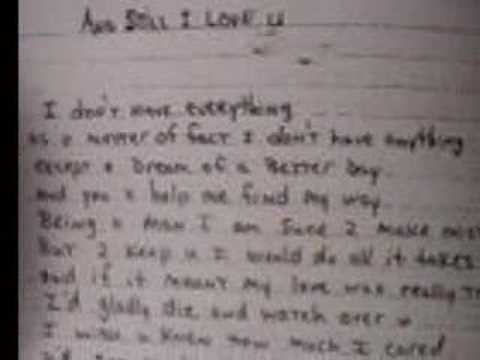 And Still I Love U
I don't have everything
as a matter of fact I don't have anything
except a Dream of a Better Day
and you 2 help me find my way
Being a man I am Sure 2 make
But 2 keep u I would do all it takes
and if it meant my love was really
I'd gladly die and watch over u
I wish u knew how much I cared